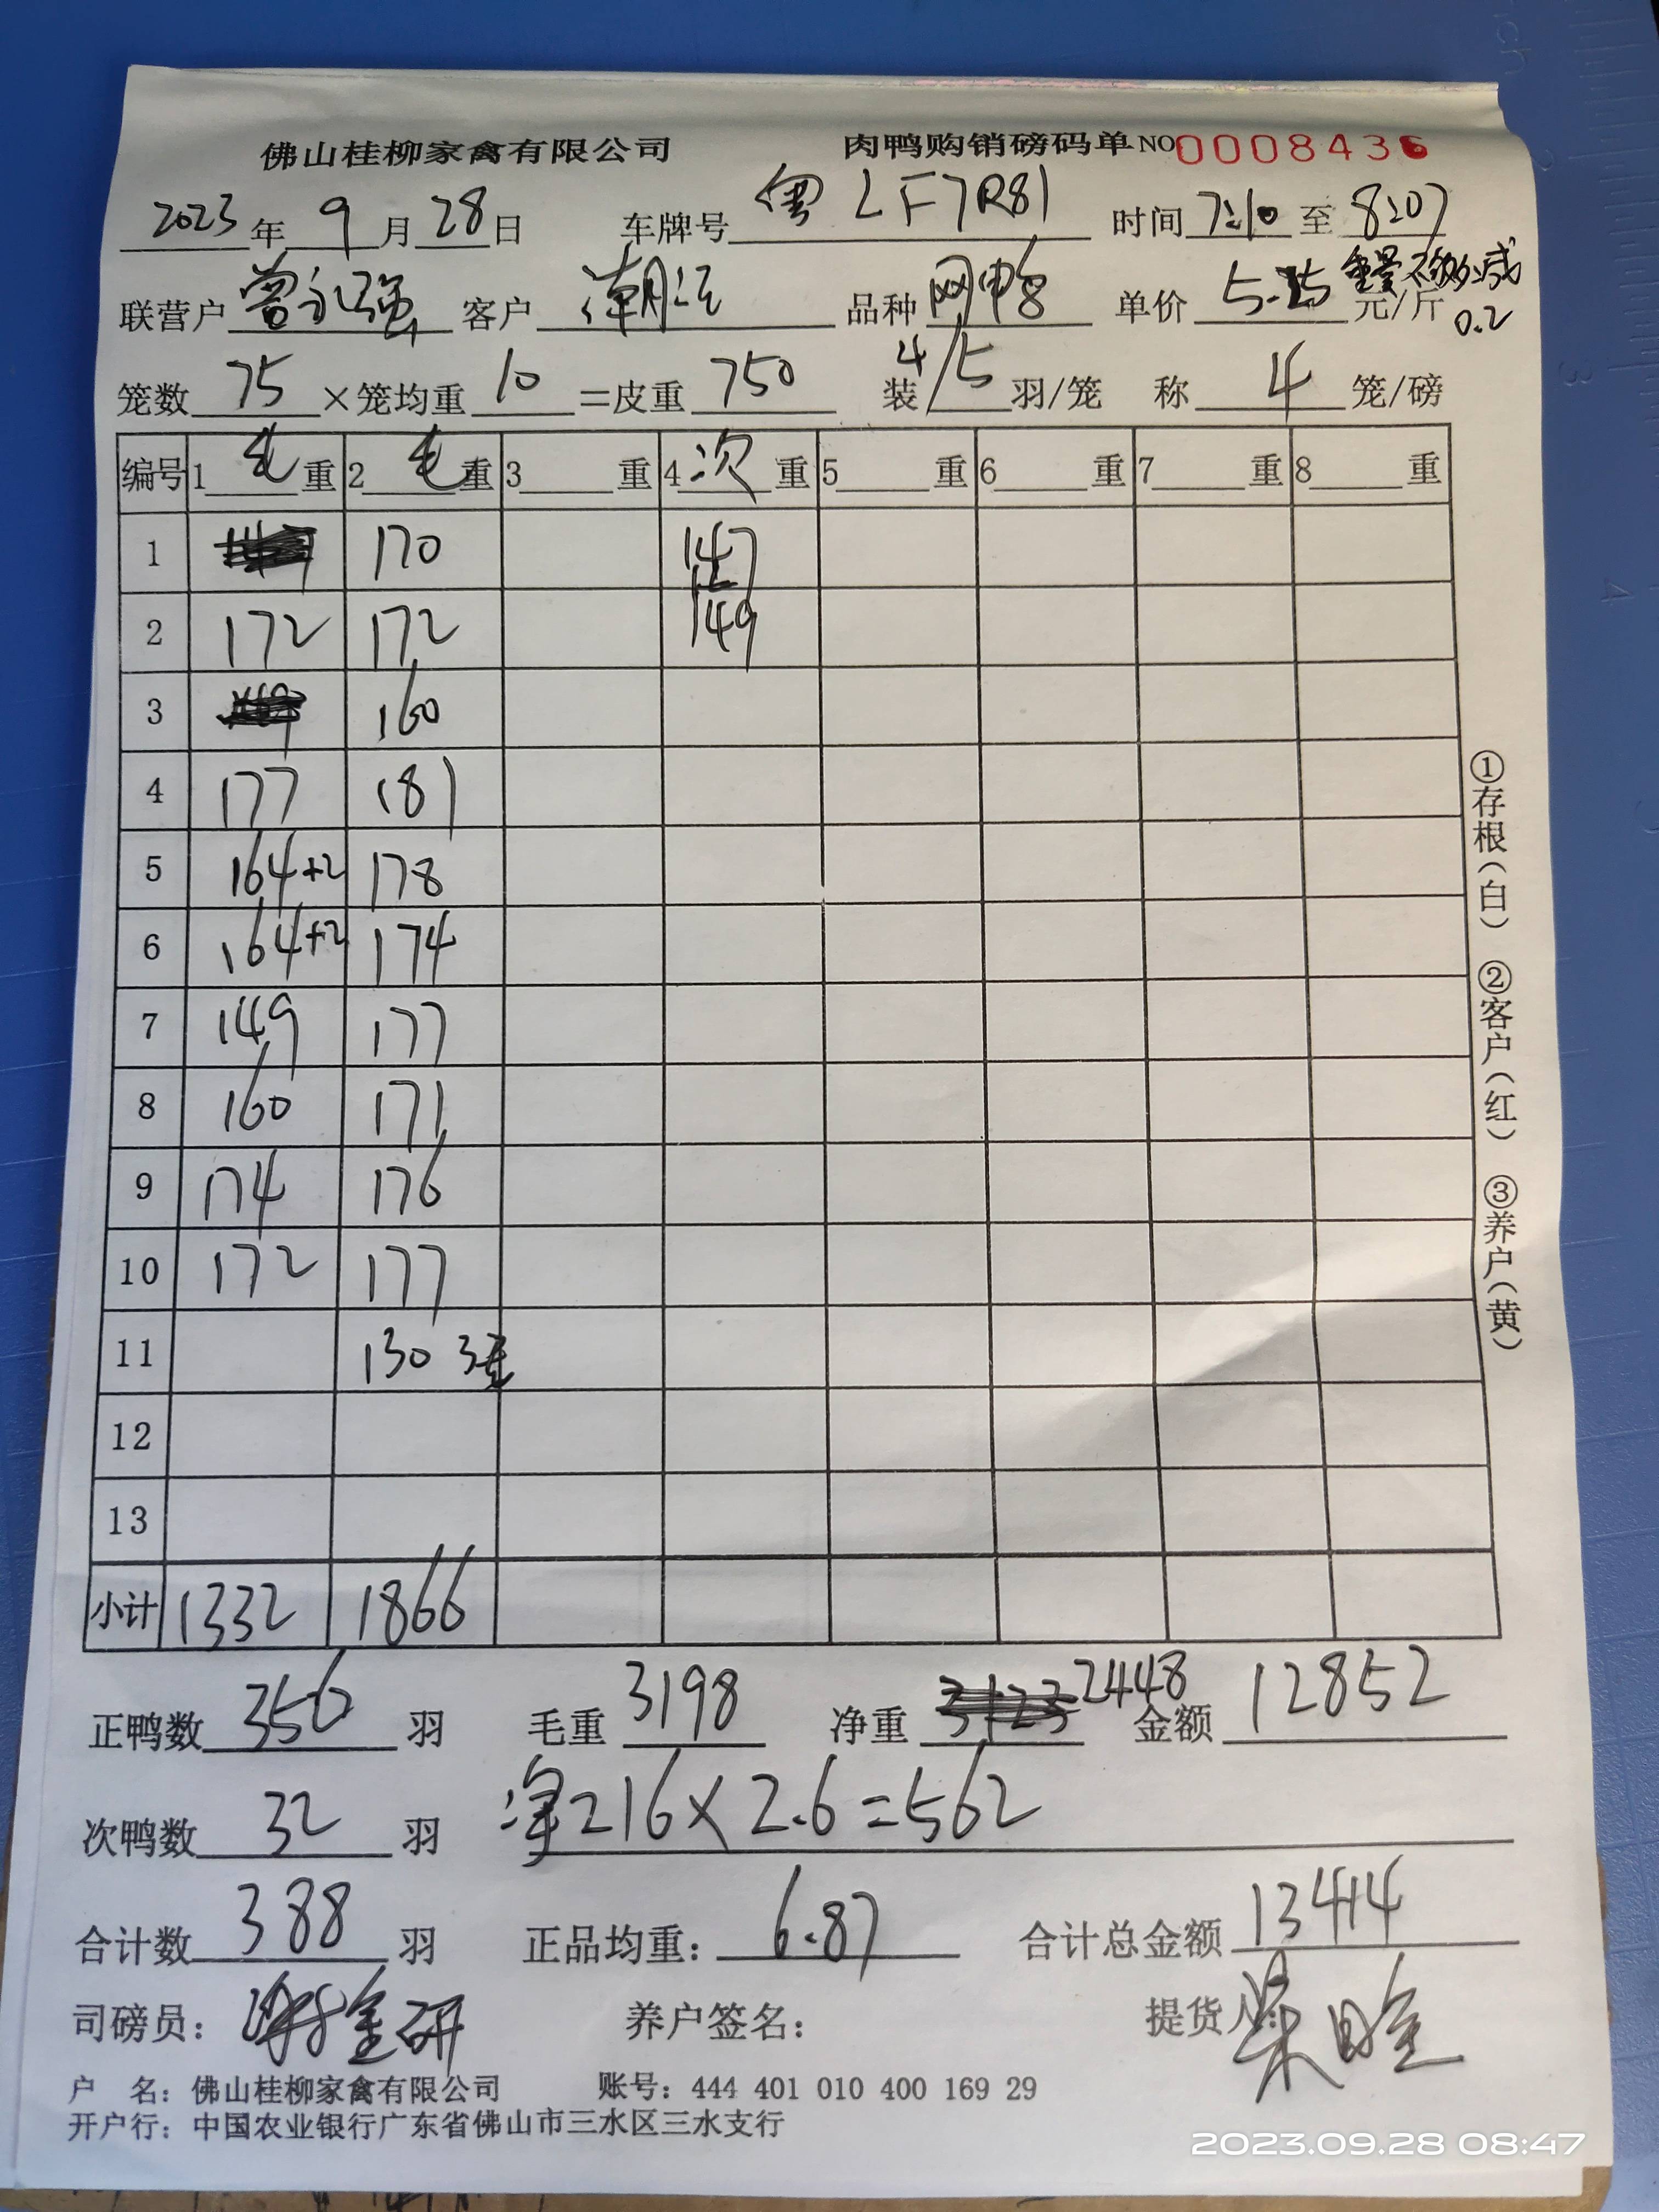 佛山桂柳家禽有限公司 肉鸭购销磅码单 NO 0008436
2023年9月28日 车牌号 粤LF7R81 时间 7:10 至 8:07
联营户 曾永强 客户 潮江 品种 网鸭 单价 5.25 元/斤 重量不够减
0.2
笼数 75 ×笼均重 10 =皮重 750 装 4/5 羽/笼 称 4 笼/磅
编号 1 毛 重 2 毛 重 3 重 4 次 重 5 重 6 重 7 重 8 重
1 170 147
2 172 172 149
3 160
4 177 181
5 164+2 178
6 164+2 174
7 149 177
8 160 171
9 174 176
10 172 177
11 130 3笼
12
13
小计 1332 1866
正鸭数 356 羽 毛重 3198 净重 2448 金额 12852
次鸭数 32 羽 净216×2.6=562
合计数 388 羽 正品均重: 6.87 合计总金额 13414
司磅员: 养户签名: 提货人:
户 名: 佛山桂柳家禽有限公司 账号: 444 401 010 400 169 29
开户行: 中国农业银行广东省佛山市三水区三水支行
①存根(白) ②客户(红) ③养户(黄)
2023.09.28 08:47